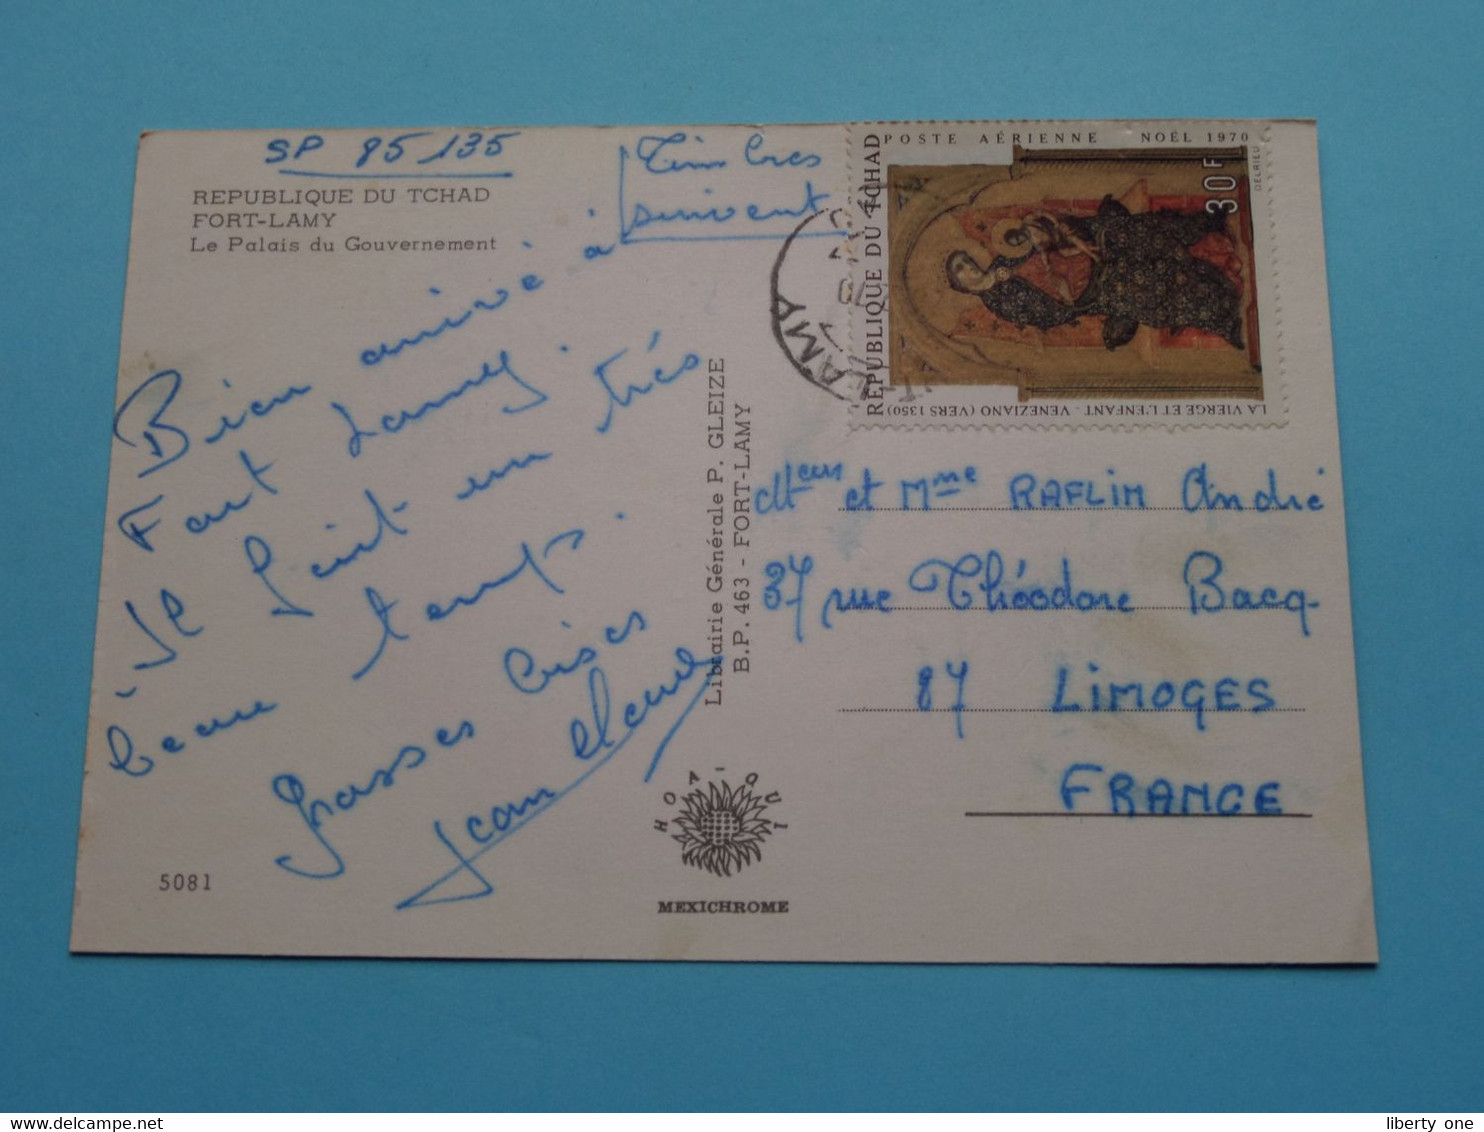 SP 85 135
REPUBLIQUE DU TCHAD
FORT-LAMY
Le Palais du Gouvernement
Timbres
suivent
Bien arrivé à
Fort Lamy.
Il fait un très
beau temps.
Grosses bises
Jean Claude
5081
Librairie Générale P. GLEIZE
B.P. 463 - FORT-LAMY
HOA-QUI
MEXICHROME
POSTE AÉRIENNE NOËL 1970
REPUBLIQUE DU TCHAD
30F
DELRIEU
LA VIERGE ET L'ENFANT - VENEZIANO (VERS 1350)
T-LAMY
Mteur et Mme RAFLIM André
37 rue Théodore Bacq
87 LIMOGES
FRANCE
liberty one